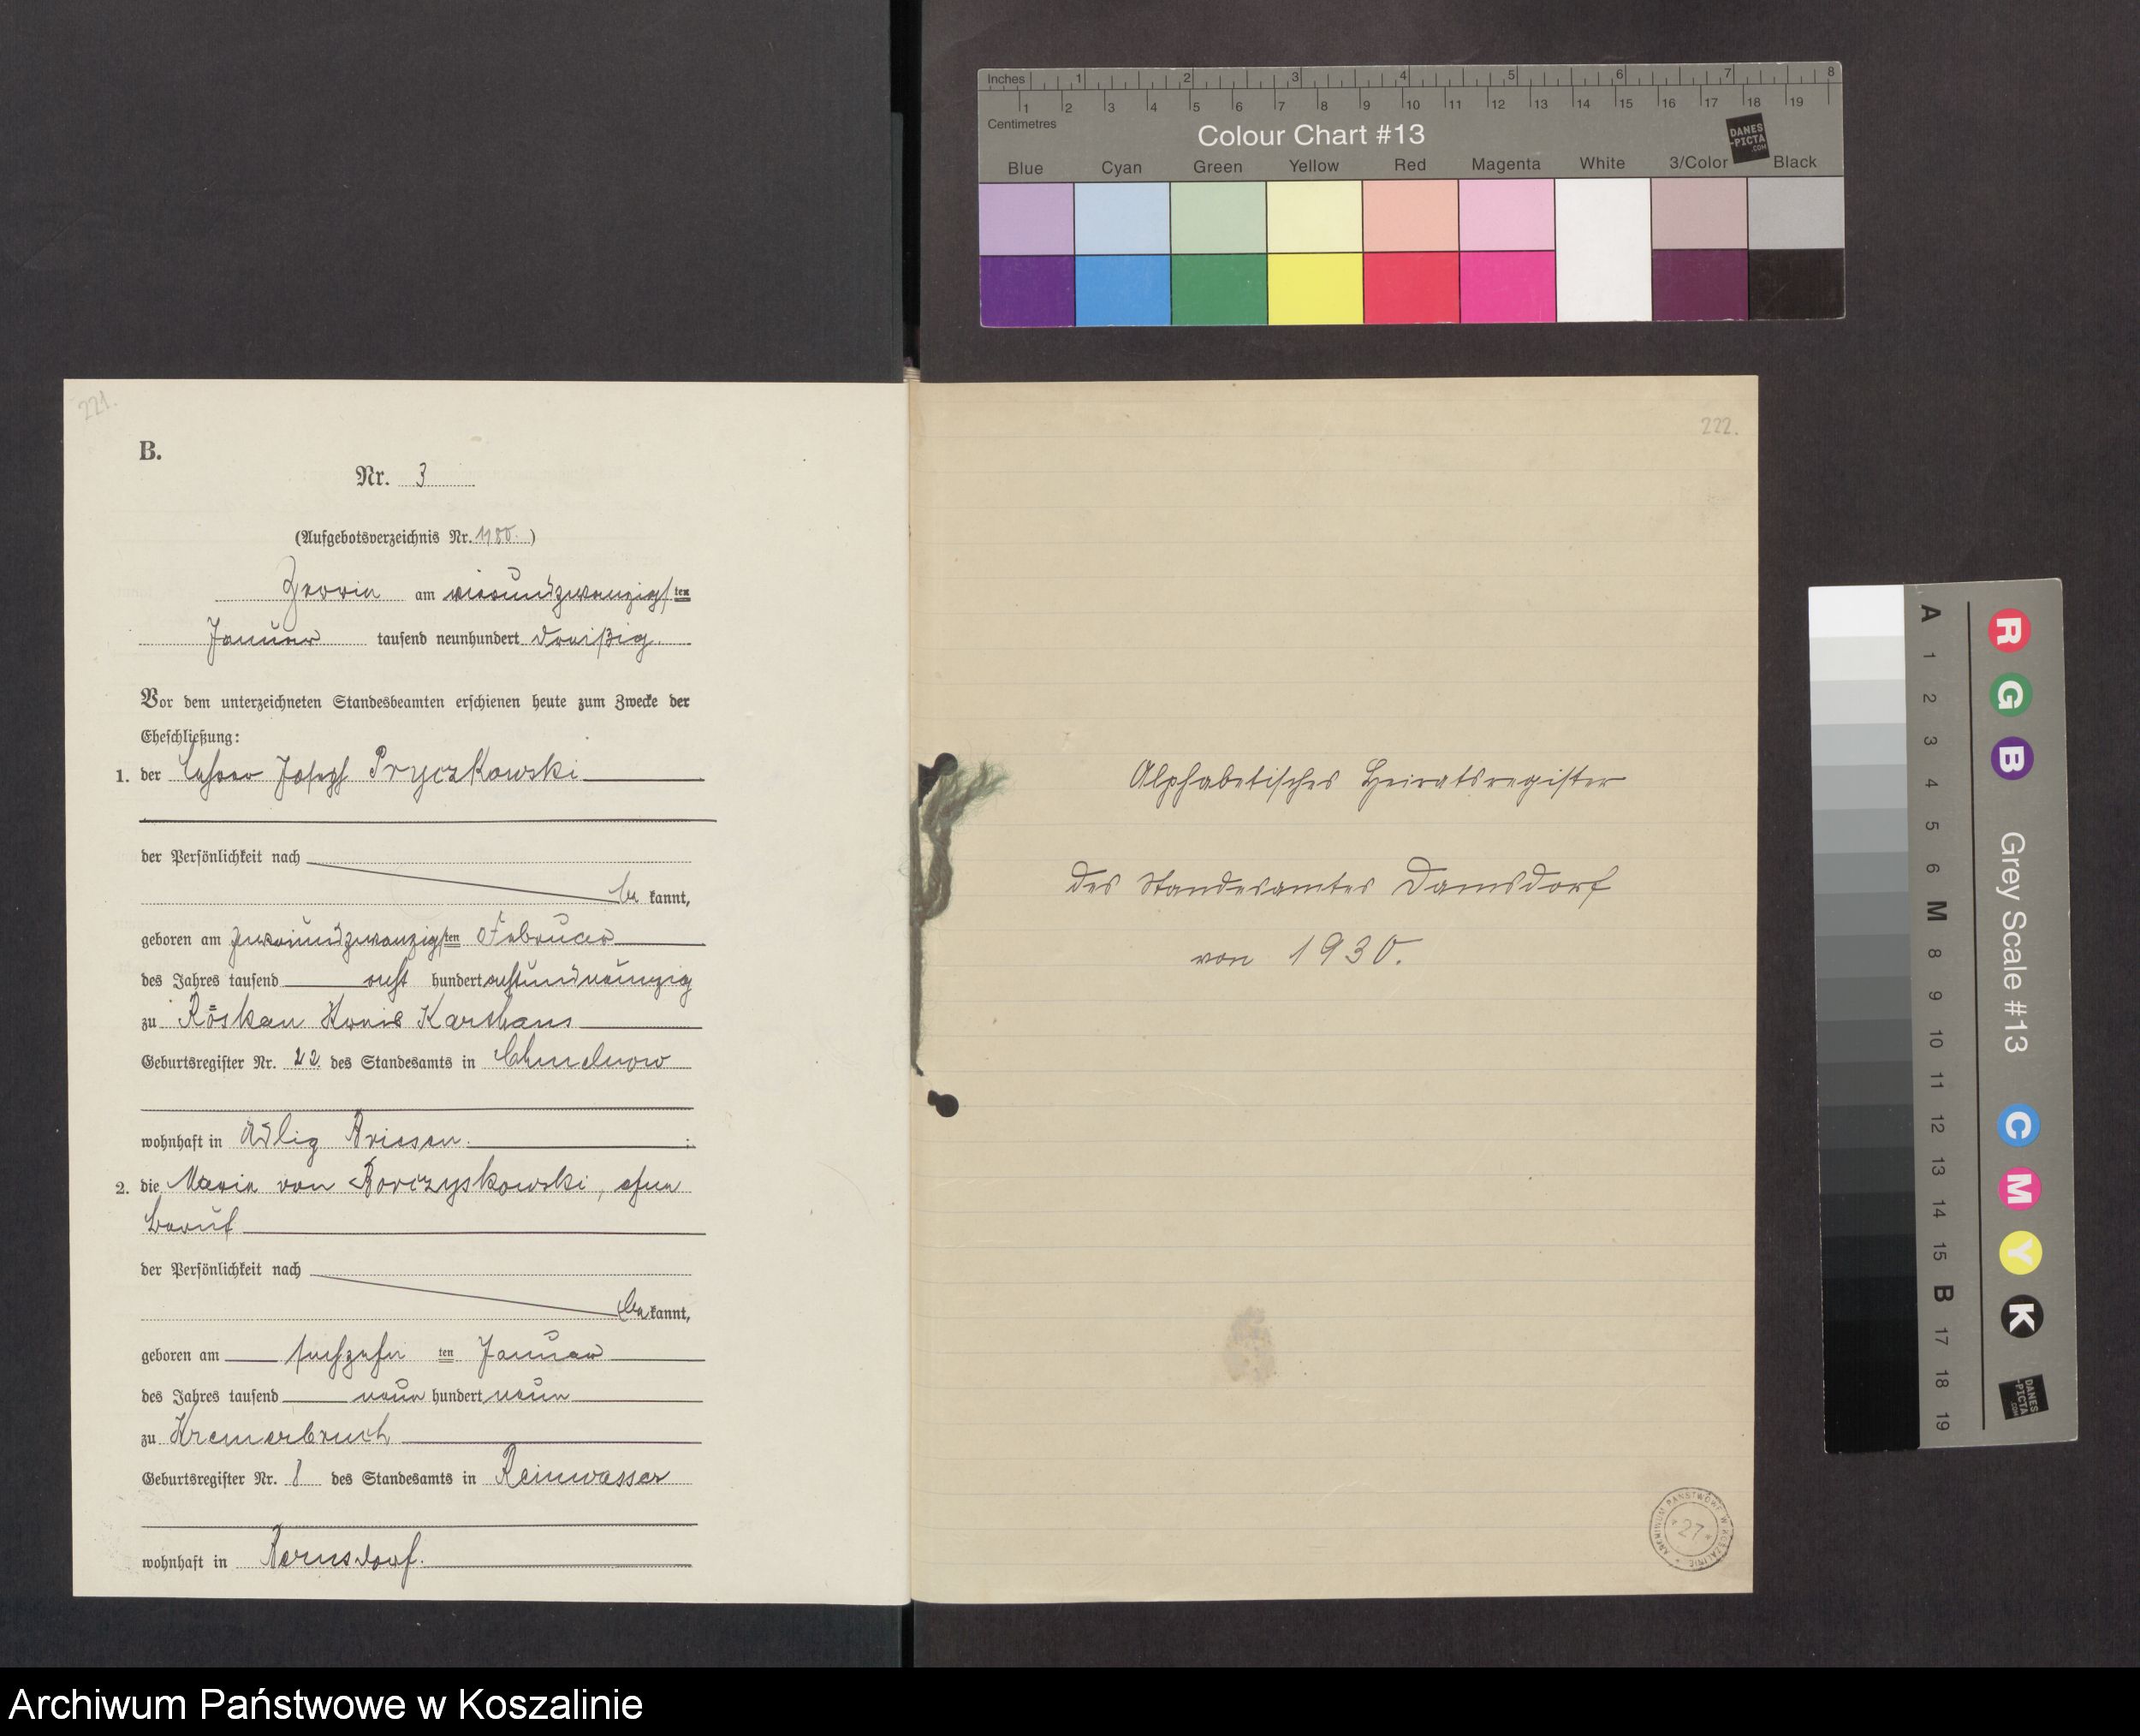 Inches 1 2 3 4 5 6 7 8
1 2 3 4 5 6 7 8 9 10 11 12 13 14 15 16 17 18 19
Centimetres
Colour Chart #13
DANES
-PICTA
.COM
Blue Cyan Green Yellow Red Magenta White 3/Color Black
221.
B.
Nr. 3
(Aufgebotsverzeichnis Nr. )
am vierundzwanzigsten
Januar tausend neunhundert dreißig.
Vor dem unterzeichneten Standesbeamten erschienen heute zum Zwecke der
Eheschließung:
1. der Joseph Pryczkowski
der Persönlichkeit nach
be kannt,
geboren am zweiundzwanzigsten Februar
des Jahres tausend acht hundert achtundneunzig
zu Röskau Kreis Karthaus
Geburtsregister Nr. 22 des Standesamts in Chmelnow
wohnhaft in Adlig Briesen. ;
2. die Maria von Borczyskowski, ohne
Beruf
der Persönlichkeit nach
be kannt,
geboren am sechzehn ten Januar
des Jahres tausend neun hundert neun
zu Kremerbruch
Geburtsregister Nr. 8 des Standesamts in Reinwasser
wohnhaft in Bernsdorf.
222.
Alphabetisches Heiratsregister
des Standesamtes Damsdorf
von 1930.
ARCHIWUM PAŃSTWOWE W KOSZALINIE
* 27 *
R G B Grey Scale #13 C M Y K
A 1 2 3 4 5 6 M 8 9 10 11 12 13 14 15 B 17 18 19
DANES
-PICTA
.COM
Archiwum Państwowe w Koszalinie